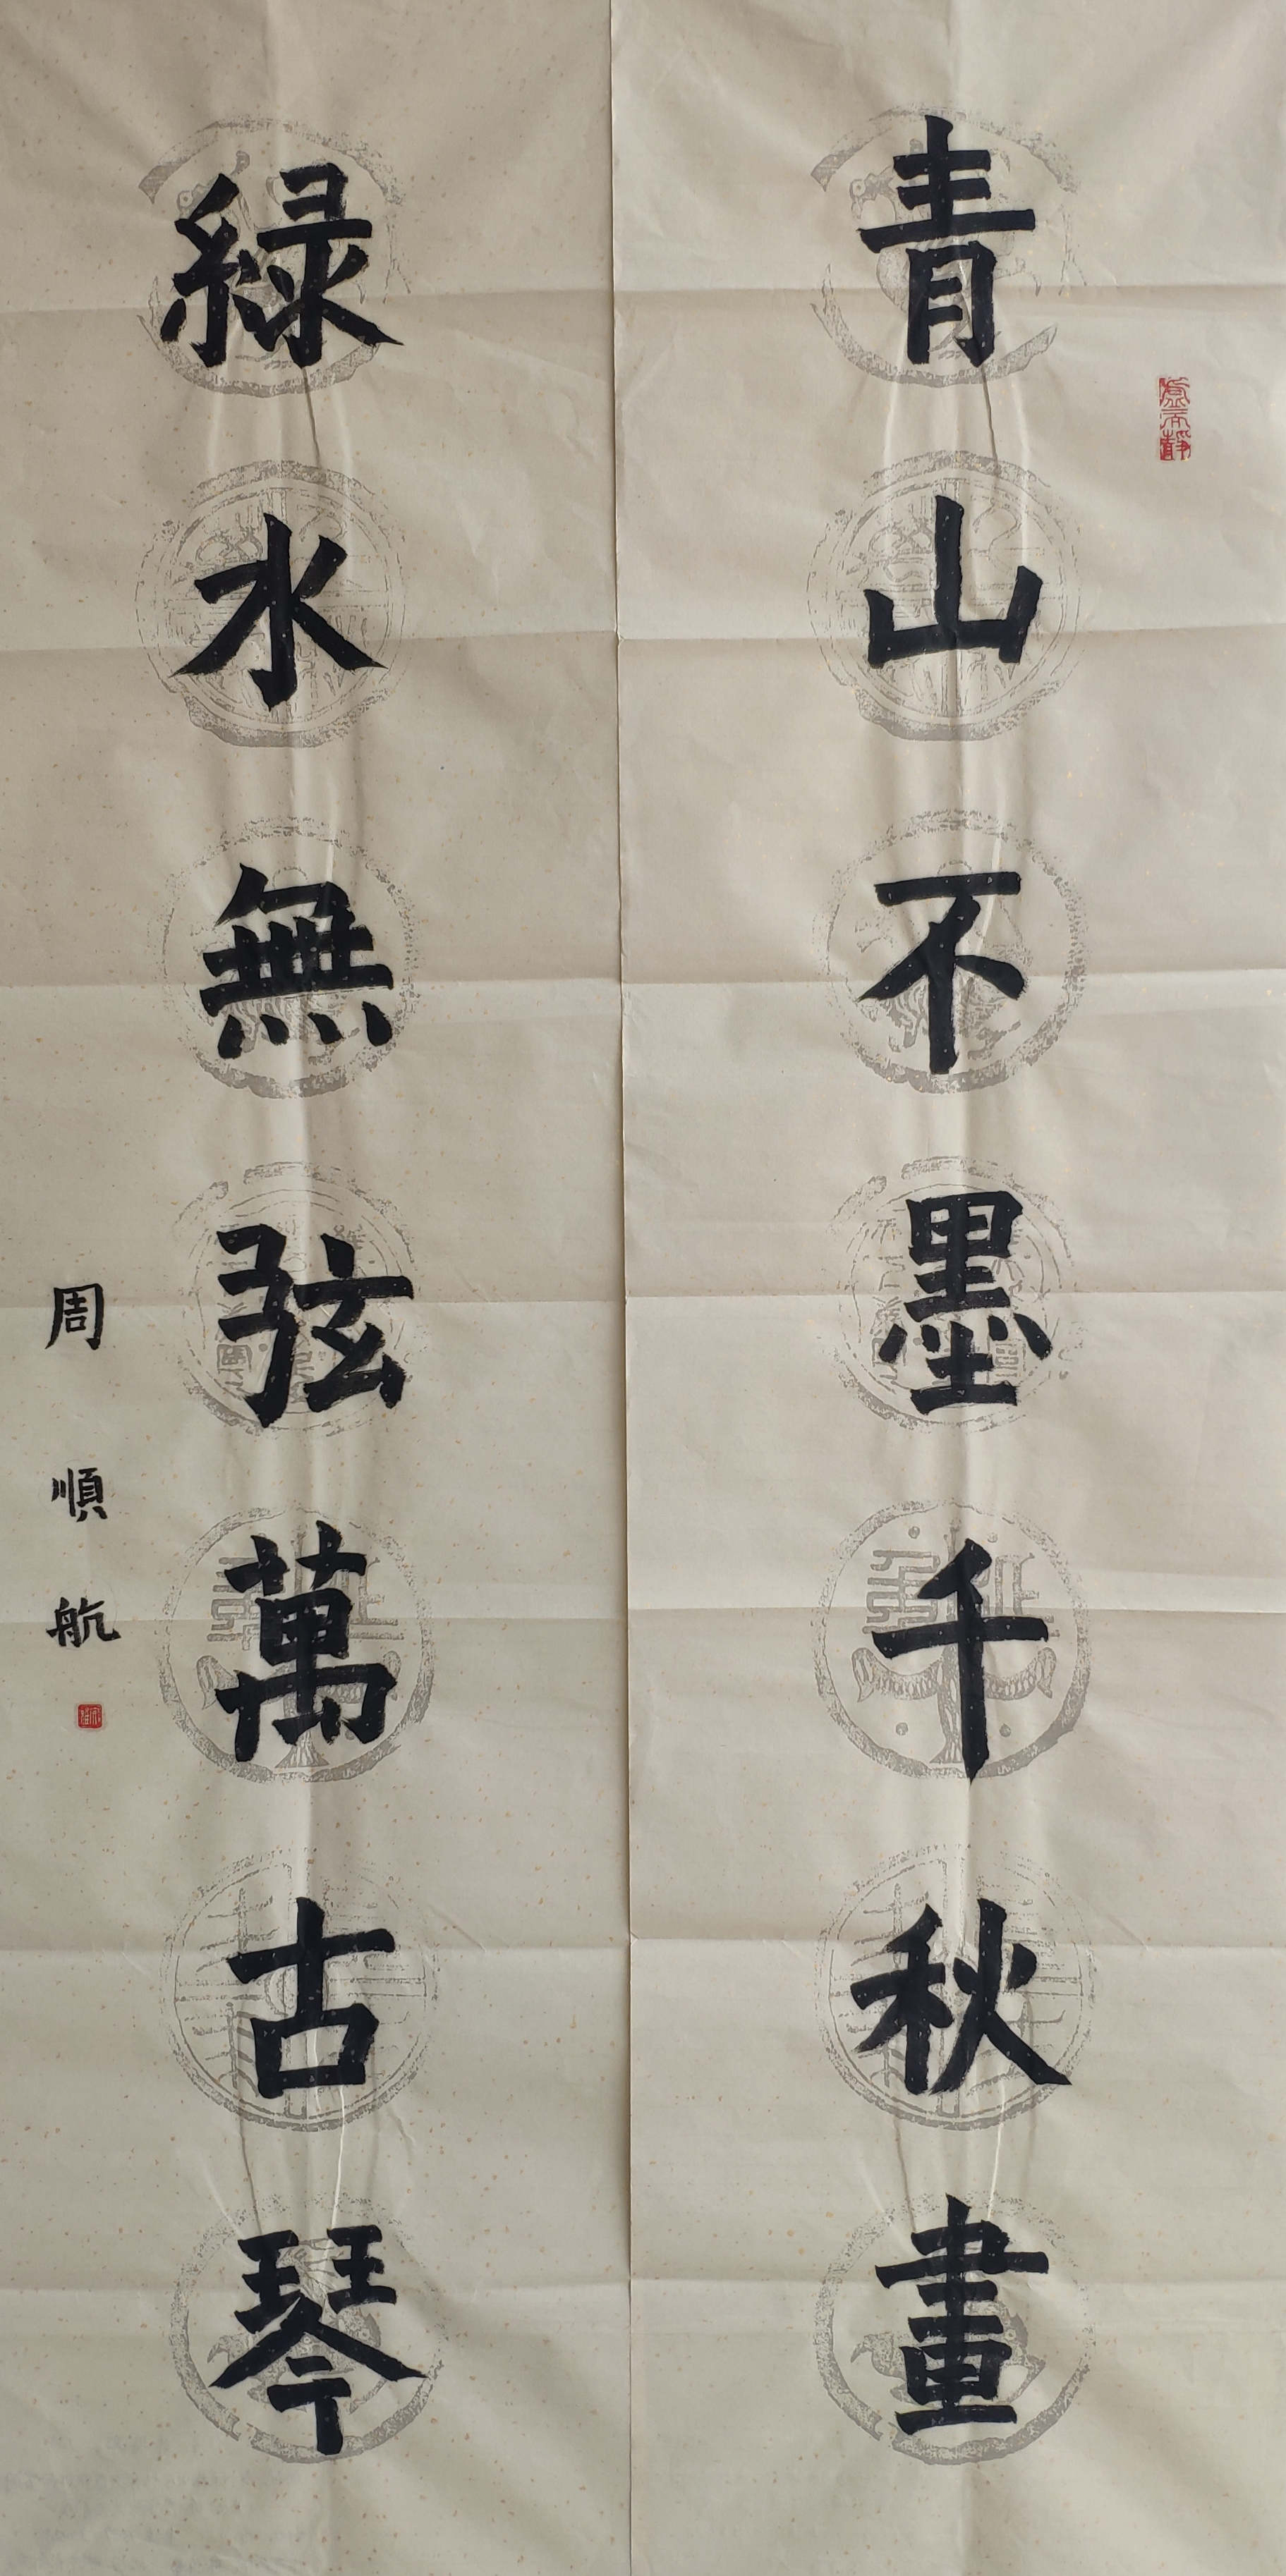 青山不墨千秋畫
綠水無弦萬古琴
周順航